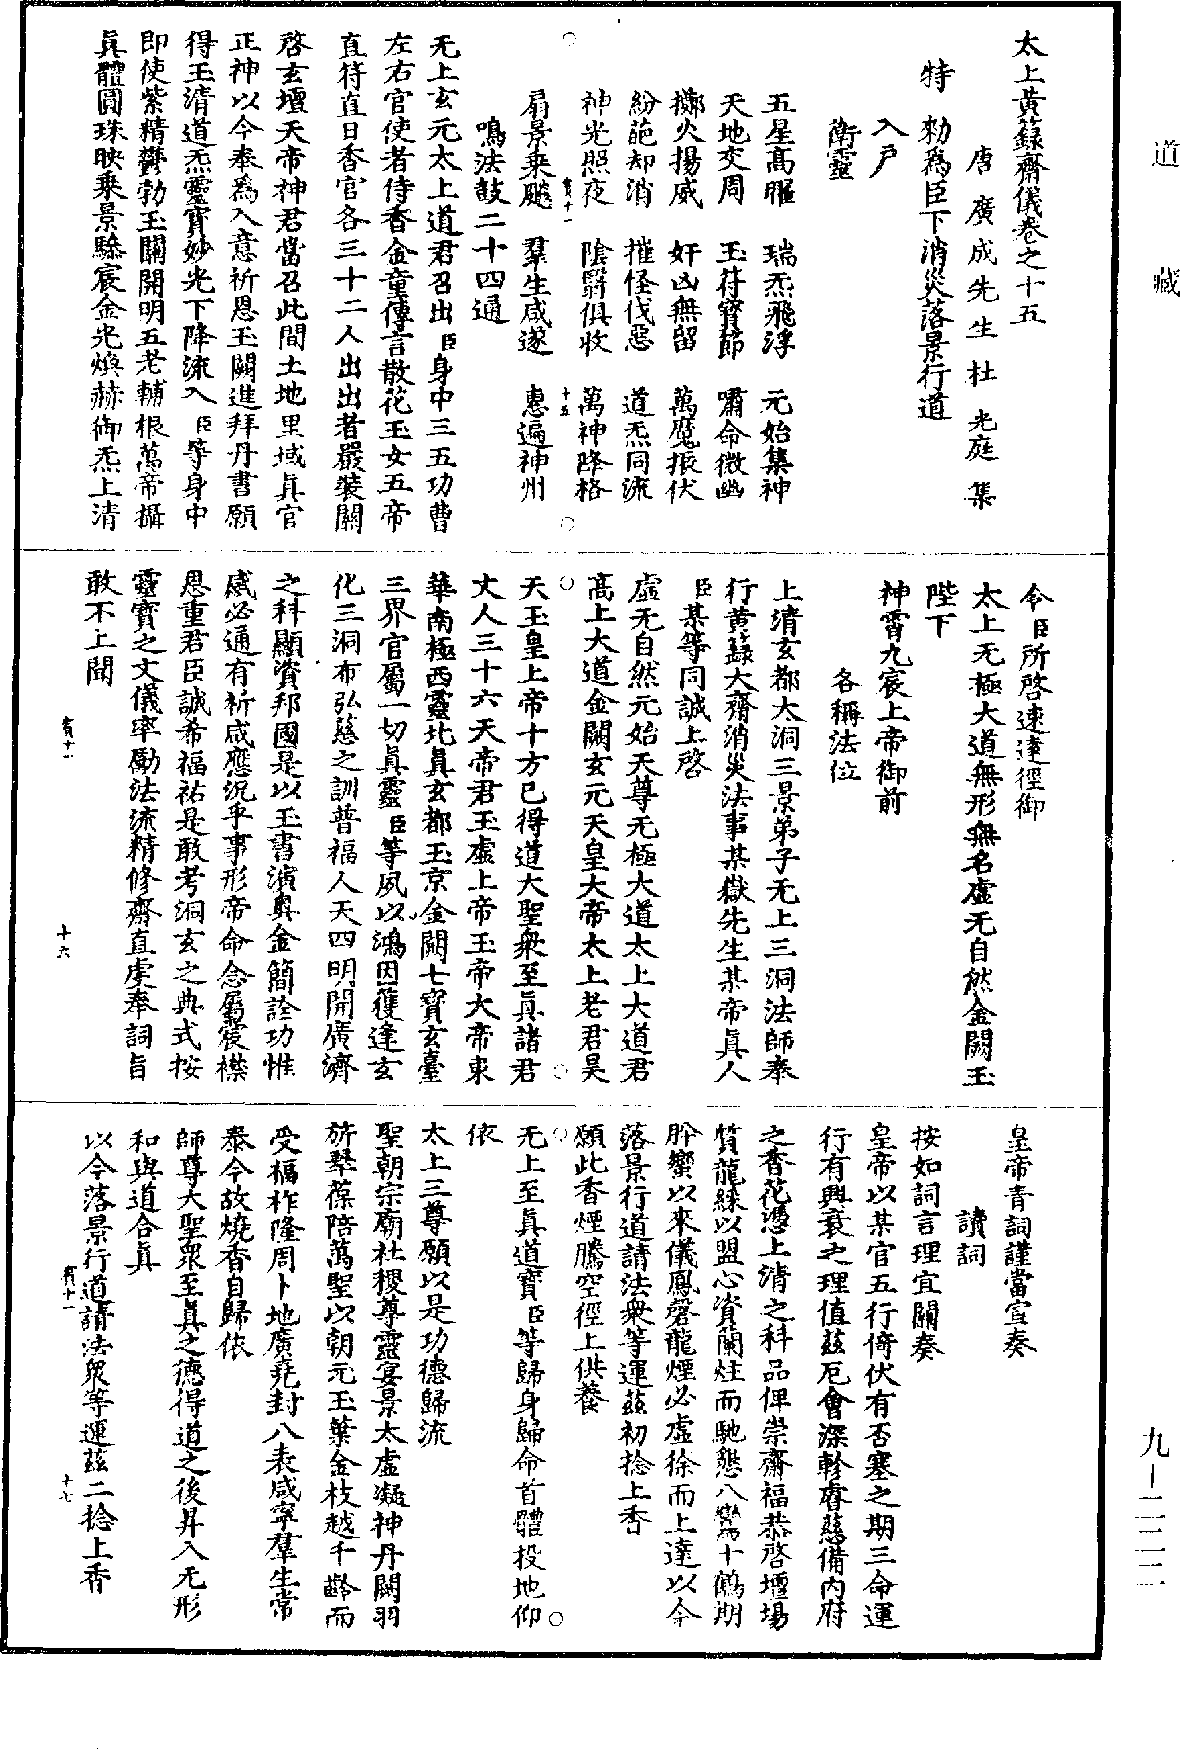 道藏
九—二二二
太上黃籙齋儀卷之十五
唐廣成先生杜光庭集
特勑爲臣下消災落景行道
入戶
衛靈
五星高曜　瑞炁飛浮　元始集神
天地交周　玉符寶節　嘯命微幽
擲火揚威　奸凶無留　萬魔振伏
紛葩却消　摧怪伐惡　道炁同流
神光照夜　陰翳俱收　萬神降格
賓十一　十五
扇景乘飇　羣生咸遂　惠遍神州
鳴法鼓二十四通
无上玄元太上道君召出臣身中三五功曹
左右官使者侍香金童傳言散花玉女五帝
直符直日香官各三十二人出出者嚴裝關
啓玄壇天帝神君當召此間土地里域眞官
正神以今奉爲入意祈恩玉闕進拜丹書願
得玉清道炁靈寶妙光下降流入臣等身中
即使紫精欝勃玉關開明五老輔根萬帝攝
眞體圓珠映乘景驂宸金光煥赫御炁上清
令臣所啓速達徑御
太上无極大道無形無名虛无自然金闕玉
陛下
神霄九宸上帝御前
各稱法位
上清玄都大洞三景弟子无上三洞法師奉
行黃籙大齋消災法事某嶽先生某帝眞人
臣某等同誠上啓
虛无自然元始天尊无極大道太上大道君
高上大道金闕玄元天皇大帝太上老君昊
天玉皇上帝十方已得道大聖衆至眞諸君
丈人三十六天帝君玉虛上帝玉帝大帝東
華南極西靈北眞玄都玉京金闕七寶玄臺
三界官屬一切眞靈臣等夙以鴻因獲逢玄
化三洞布弘慈之訓普福人天四明開廣濟
之科顯資邦國是以玉書演奧金簡詮功惟
感必通有祈咸應況乎事形帝命念屬宸襟
恩重君臣誠希福祐是敢考洞玄之典式按
靈寶之文儀率勵法流精修齋直虔奉詞旨
敢不上聞
賓十一　十六
皇帝青詞謹當宣奏
讀詞
按如詞言理宜關奏
皇帝以某官五行倚伏有否塞之期三命運
行有興衰之理值茲厄會深軫睿慈備內府
之香花憑上清之科品俾崇齋福恭啓壇場
質龍綵以盟心資蘭炷而馳懇八鸞十鶴期
肸蠁以來儀鳳磬龍煙必虛徐而上達以今
落景行道請法衆等運茲初捻上香
願此香煙騰空徑上供養
无上至眞道寶臣等歸身歸命首體投地仰
依
太上三尊願以是功德歸流
聖朝宗廟社稷尊靈宴景太虛凝神丹闕羽
旂翠葆陪萬聖以朝元玉葉金枝越千齡而
受福祚隆周卜地廣堯封八表咸寧羣生常
泰今故燒香自歸依
師尊大聖眾至真之德得道之後昇入无形
和與道合真
賓十一　十七
以今落景行道請法眾等運茲二捻上香